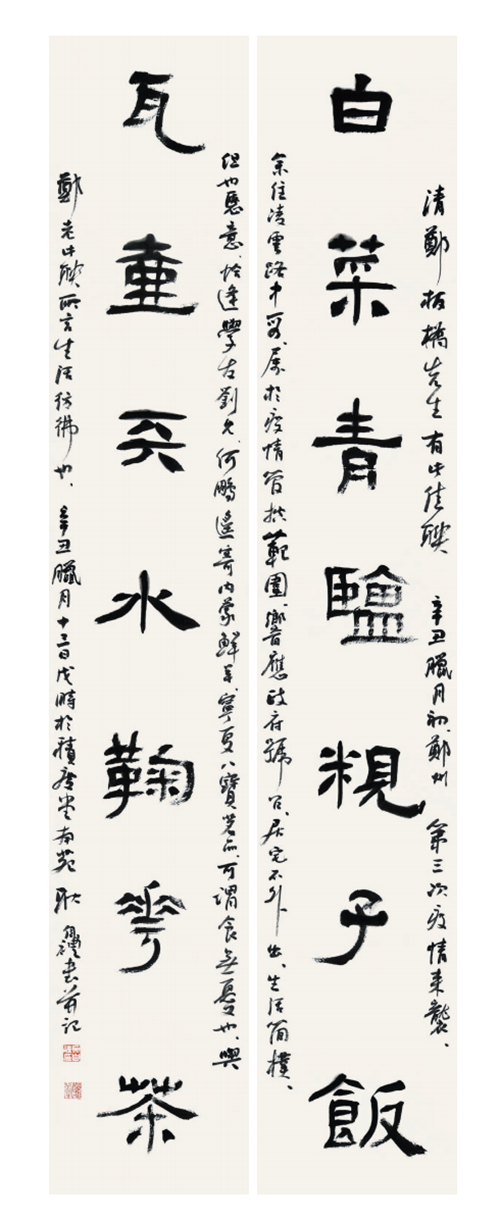 清鄭板橋先生有此佳聯 辛丑臘月初鄭州第三次疫情来襲、
白菜青鹽粯子飯
余住凌雲路中段、屬於疫情管控範圍、響應政府號召、居宅不外出、生活簡樸、
但也愜意、恰逢學古劉兄、何鵬遙寄内蒙鮮羊、寧夏八寶茗品、可謂食無憂也、與
瓦壺天水鞠華茶
鄭老此聯所言生活彷彿也、辛丑臘月十二日戌時於積慶堂南苑 耿自禮書并記